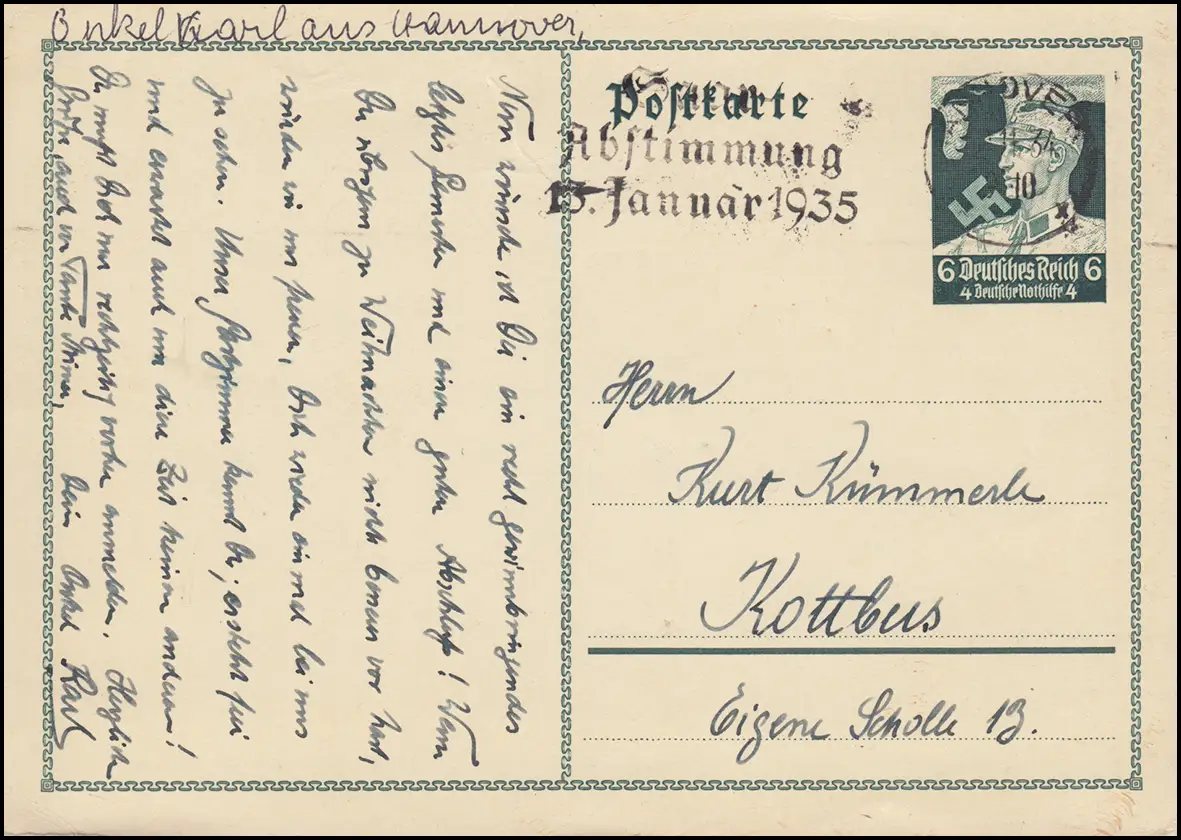 Onkel Karl aus Hannover,
Postkarte
Saar
Abstimmung
13. Januar 1935
HANNOVER
34
10
6 Deutsches Reich 6
4 Deutsche Nothilfe 4
Herrn
Kurt Kümmerle
Kottbus
Eigene Scholle 13.
Nun wünsche ich Dir ein recht gewinnbringendes
letztes Semester und einen guten Abschluß! Wenn
Du übrigens zu Weihnachten nichts besseres vor hast,
würden wir uns freuen, Dich wieder einmal bei uns
zu sehen. Unser kennst Du; es steht frei
und erwartet auch um diese Zeit keinen anderen!
Du mußt Dich nur rechtzeitig vorher anmelden. Herzlich
Grüße, auch von Tante Minna, Dein Onkel Karl